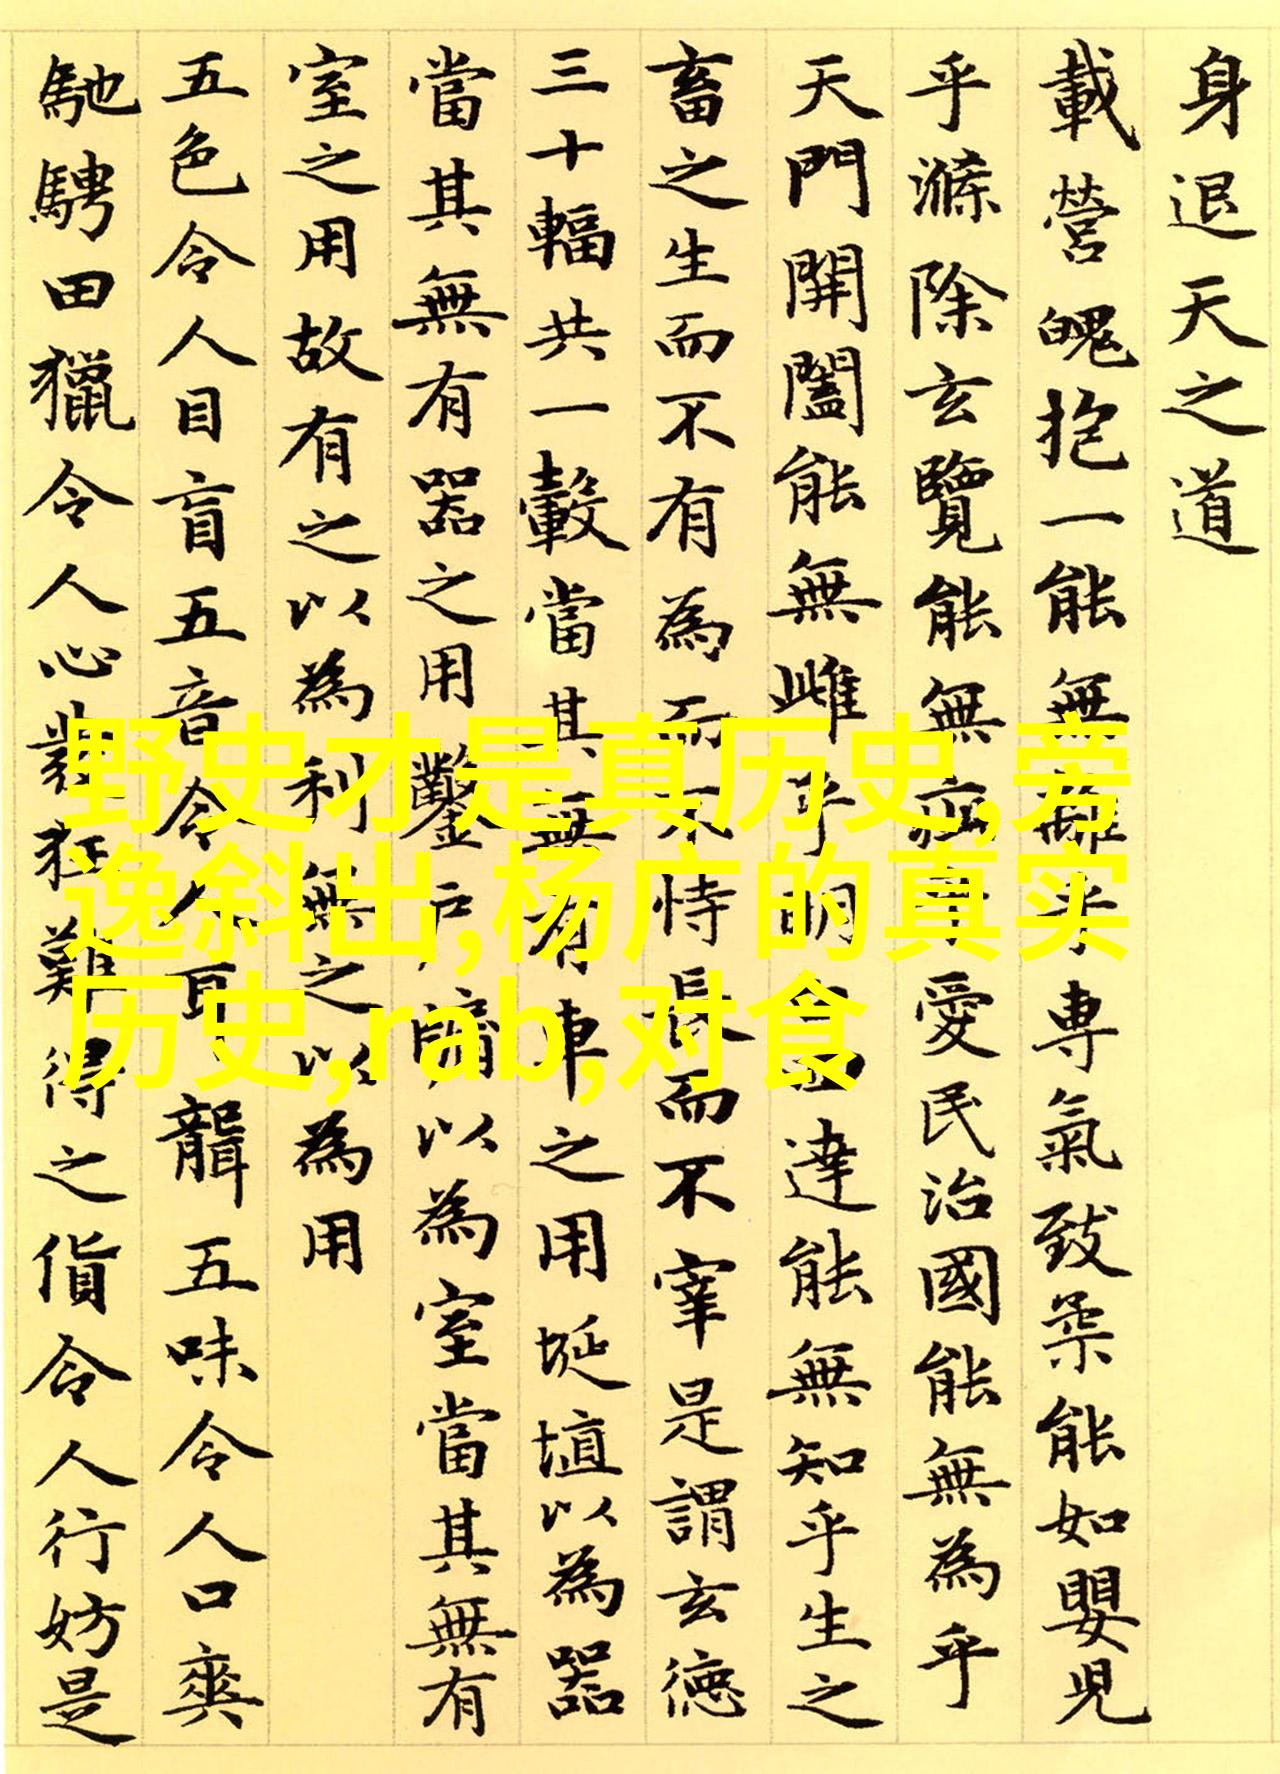 身退天之道
載營魄抱一能無離乎專氣致柔能如嬰児
乎滌除玄覽能無疵乎愛民治國能無為乎
天門開闔能無雌乎明白四達能無知乎生之
畜之生而不有為而不恃長而不宰是謂玄德
三十輻共一轂當其無有車之用埏埴以為器
當其無有器之用鑿戶牖以為室當其無有
室之用故有之以為利無之以為用
五色令人目盲五音令人耳聾五味令人口爽
馳騁田獵令人心發狂難得之貨令人行妨是
野史才是真历史,旁
逸斜出,杨广的真实
历史,rab,对食